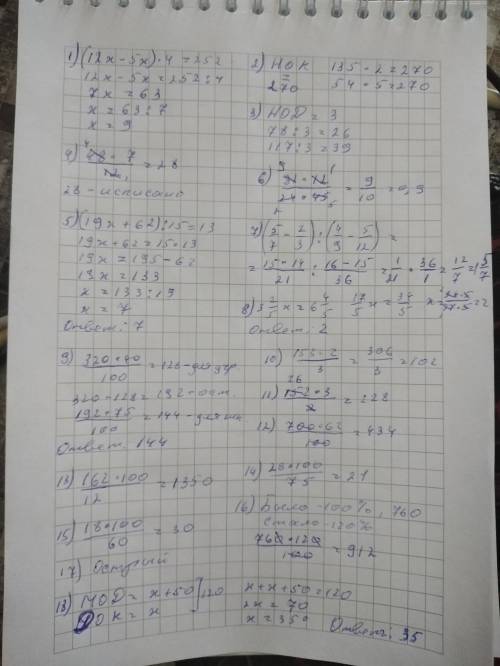 1) (12x-5x)·4=252
12x-5x=252:4
7x=63
x=63:7
x=9
2) НОК 135·2=270
= 270 54·5=270
3) НОД = 3
78:3=26
117:3=39
4) 48·7/12=28
28 - исписано
5) (19x+62):15=13
19x+62=15·13
19x=195-62
19x=133
x=133:19
x=7
Ответ: 7
6) = 9/10 = 0,9
7) (5/7 - 2/3) : (4/9 - 5/12) =
= 15-14/21 : 16-15/36 = 1/21 · 36/1 = 12/7 = 1 5/7
8) 3 2/5 x = 6 4/5 17/5 x = 34/5 x = 34·5/17·5 = 2
Ответ: 2
9) 320·40/100 = 128
320-128=192-ост.
192·75/100 = 144
Ответ 144
10) 153·2/3 = 306/3 = 102
11) 152·3/2 = 228
12) 700·62/100 = 434
13) 162·100/12 = 1350
14) 28·100/75 = 21
15) 18·100/60 = 30
16) Было - 100%, 760
Стало - 120%
760·120/100 = 912
17) Острый
18) MOD = x+50 ] 120
DOK = x
x+x+50=120
2x=70
x=35°
Ответ: 35